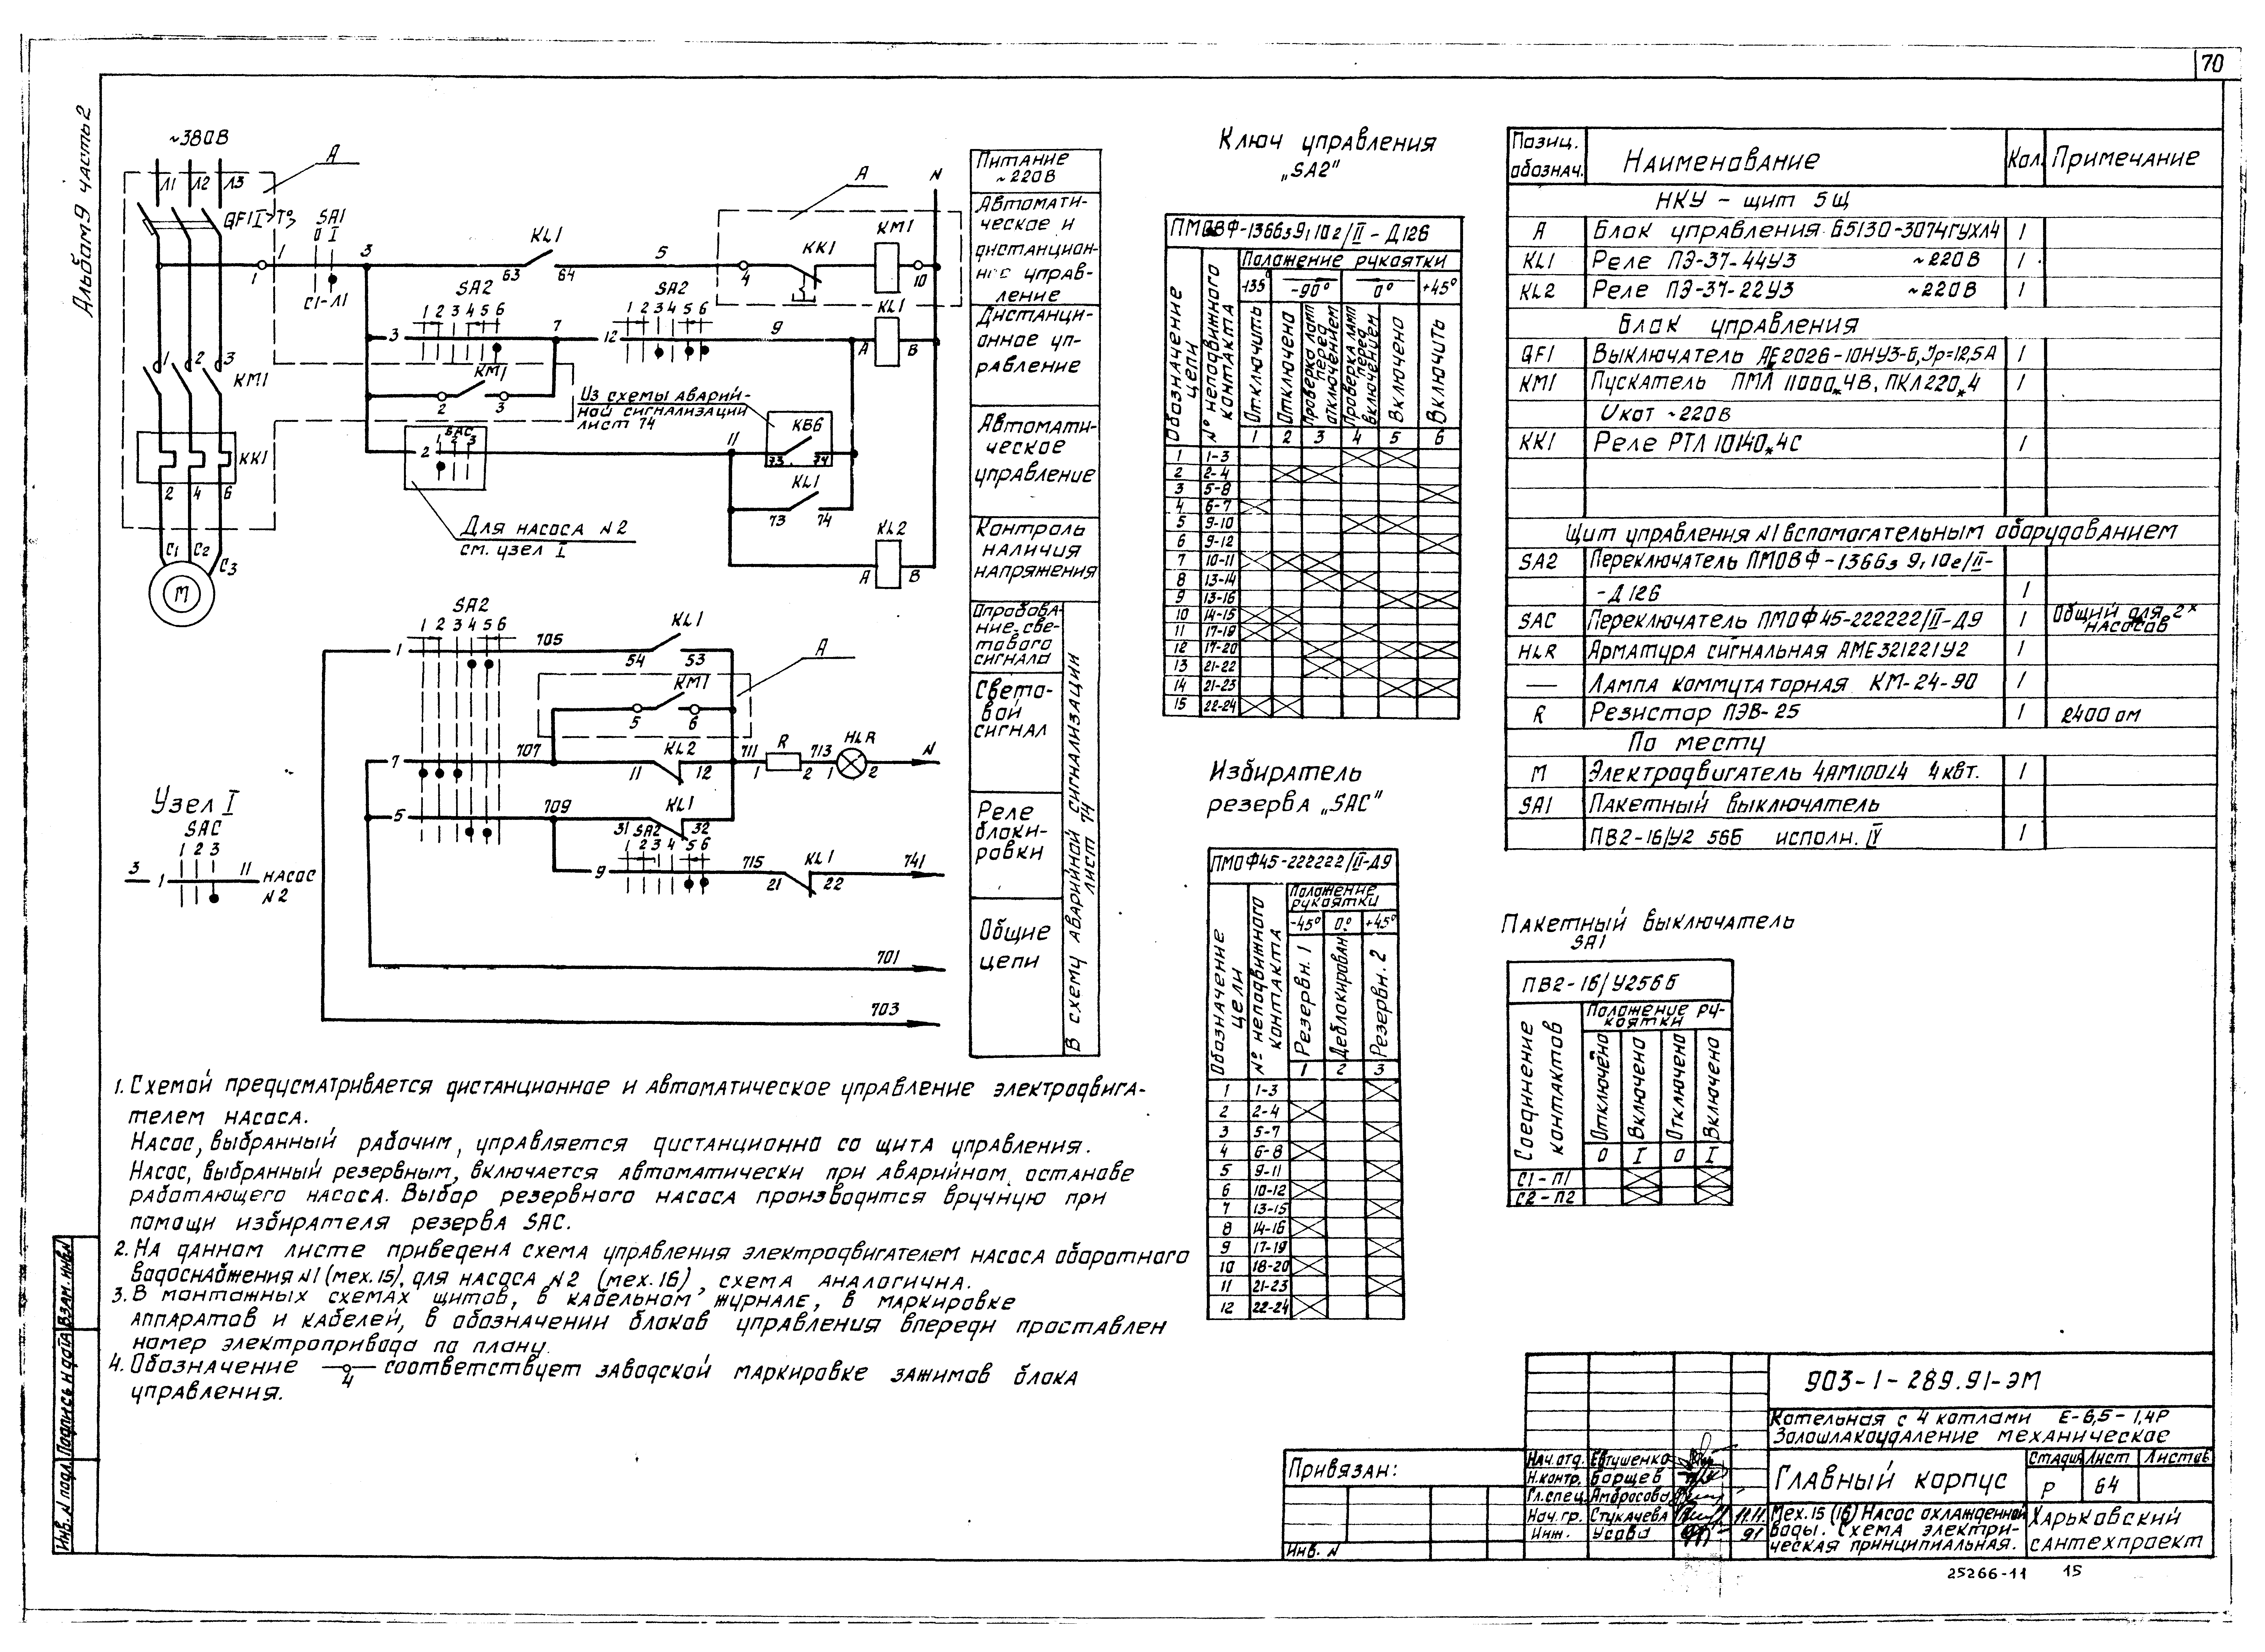 70
Альбом 9 часть 2
~380В
А
Л1 Л2 Л3
QF1 I> T°
SA1
0 I
С1-Л1
1
1
3
KL1
63 64
5
4
KK1
А
KM1
10
N
SA2
1 2 3 4 5 6
3
7
SA2
1 2 3 4 5 6
12
9
KL1
А В
KM1
2 3
1 2 3
KM1
KK1
2 4 6
С1 С2 С3
М
Из схемы аварий-
ной сигнализации
лист 74
SAC
1 2 3
2
11
КВ6
73 74
KL1
73 74
KL2
А В
Для насоса N2
см. узел I
SA2
1 2 3 4 5 6
1
705
KL1
54 53
А
KM1
5 6
7
707
KL2
11 12
711
R
1 2
713
HLR
1 2
N
5
709
KL1
31 32
SA2
1 2 3 4 5 6
9
715
KL1
21 22
741
701
703
Узел I
SAC
1 2 3
3 1 11 насос
N2
Питание
~220В
Автомати-
ческое и
дистанцион-
ное управ-
ление
Дистанци-
онное уп-
равление
Автомати-
ческое
управление
Контроль
наличия
напряжения
Опробова-
ние све-
тового
сигнала
Свето-
вой
сигнал
Реле
блоки-
ровки
Общие
цепи
В схему аварийной сигнализации
лист 74
1. Схемой предусматривается дистанционное и автоматическое управление электродвига-
телем насоса.
Насос, выбранный рабочим, управляется дистанционно со щита управления.
Насос, выбранный резервным, включается автоматически при аварийном останове
работающего насоса. Выбор резервного насоса производится вручную при
помощи избирателя резерва SAC.
2. На данном листе приведена схема управления электродвигателем насоса оборотного
водоснабжения N1 (мех.15), для насоса N2 (мех.16), схема аналогична.
3. В монтажных схемах щитов, в кабельном журнале, в маркировке
аппаратов и кабелей, в обозначении блоков управления впереди проставлен
номер электропривода по плану.
4. Обозначение 4 соответствует заводской маркировке зажимов блока
управления.
Ключ управления
„SA2"
ПМОВФ-1366з9,10г/II-Д126
Обозначение цепи
N° неподвижного контакта
Положение рукоятки
-135° -90° 0° +45°
Отключить
Отключено
Проверка ламп перед отключением
Проверка ламп перед включением
Включено
Включить
1 2 3 4 5 6
1 1-3
2 2-4
3 5-8
4 6-7
5 9-10
6 9-12
7 10-11
8 13-14
9 13-16
10 14-15
11 17-19
12 17-20
13 21-22
14 21-23
15 22-24
Избиратель
резерва „SAC"
ПМОФ45-222222/II-Д9
Обозначение цепи
N° неподвижного контакта
Положение
рукоятки
-45° 0° +45°
Резервн. 1
Деблокирован
Резервн. 2
1 2 3
1 1-3
2 2-4
3 5-7
4 6-8
5 9-11
6 10-12
7 13-15
8 14-16
9 17-19
10 18-20
11 21-23
12 22-24
Позиц. обознач. Наименование Кол. Примечание
НКУ - щит 5щ
А Блок управления Б5130-3074ГУХЛ4 1
KL1 Реле ПЭ-37-44У3 ~220В 1
KL2 Реле ПЭ-37-22У3 ~220В 1
Блок управления
QF1 Выключатель АЕ2026-10НУ3-Б, Iр=12,5А 1
KM1 Пускатель ПМЛ 11000*4В, ПКЛ220*4 1
Uкат ~220В
KK1 Реле РТЛ 10140*4С 1
Щит управления N1 вспомогательным оборудованием
SA2 Переключатель ПМОВФ-1366з 9,10г/II-
-Д126 1
SAC Переключатель ПМОФ45-222222/II-Д9 1 Общий для 2х насосов
HLR Арматура сигнальная АМЕ321221У2 1
— Лампа коммутаторная КМ-24-90 1
R Резистор ПЭВ-25 1 2400 ом
По месту
М Электродвигатель 4АМ100L4 4квт. 1
SA1 Пакетный выключатель
ПВ2-16/У2 56Б исполн. IV 1
Пакетный выключатель
SA1
ПВ2-16/У256Б
Соединение контактов
Положение ру-
коятки
Отключено
Включено
Отключено
Включено
0 I 0 I
С1-П1
С2-П2
903-1-289.91-ЭМ
Котельная с 4 котлами Е-6,5-1,4Р
Золошлакоудаление механическое
Главный корпус
Стадия Лист Листов
Р 64
Мех.15 (16) Насос охлажденной
воды. Схема электри-
ческая принципиальная.
Харьковский
сантехпроект
Нач.отд. Евтушенко
Н.контр. Борщев
Гл.спец. Амбросова
Нач.гр. Стукачева 11.11.
Инж. Усова 91
Привязан:
Инв. N
Инв. N подл. Подпись и дата Взам. инв. N
25266-11 15